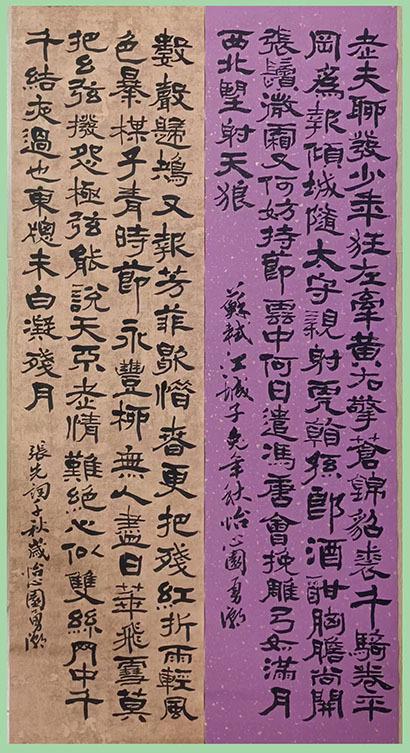 老夫聊發少年狂左牽黃右擎蒼錦貂裘千騎卷平
岡爲報傾城隨太守親射虎看孫郎酒酣胸膽尚開
張鬢微霜又何妨持節雲中何日遣馮唐會挽雕弓如滿月
西北望射天狼
蘇軾江城子兔年秋怡心園勇
數聲鴂又報芳菲歇惜春更把殘紅折雨輕風
色暴楳子青時節永豐柳無人盡日華飛雪莫
把幺弦撥怨極弦能說天不老情難絕心似雙絲网中千
千結夜過也東牕未白凝殘月
張先詞千秋歲怡心園勇